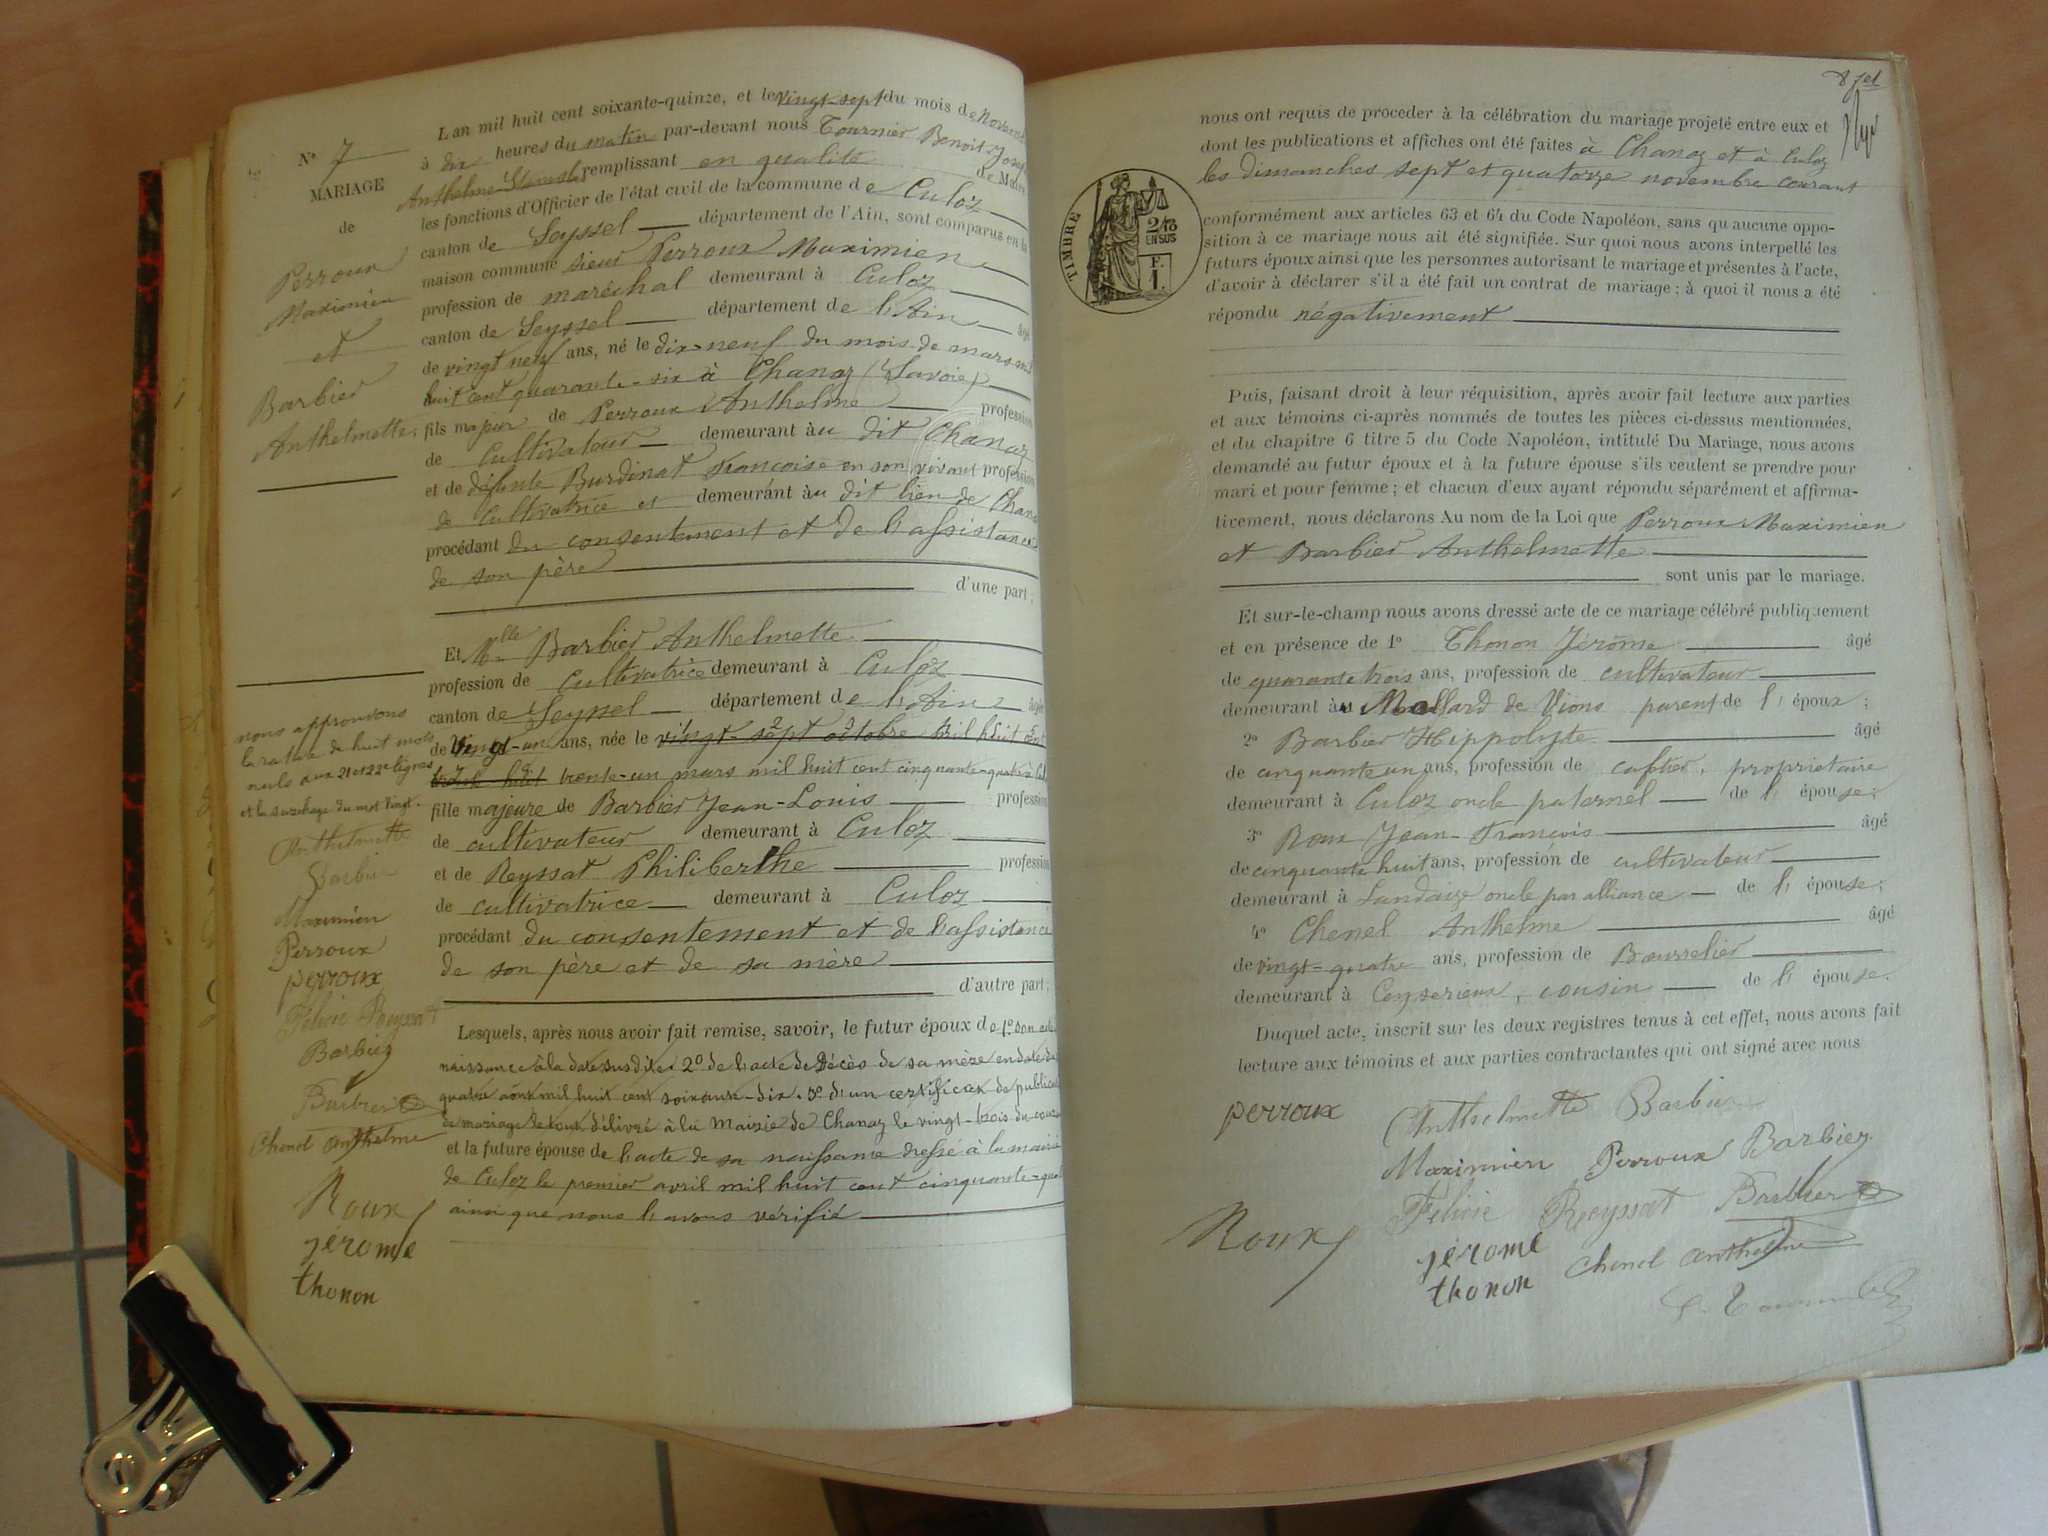 N° 7
MARIAGE
de
Perroux
Maximien
et
Barbier
Anthelmette.
L'an mil huit cent soixante-quinze, et le vingt-sept du mois de Novembre
à dix heures du matin par-devant nous Tournier Benoit Joseph
Anthelme Stanislas remplissant en qualité de Maire
les fonctions d'Officier de l'état civil de la commune de Culoz
canton de Seyssel département de l'Ain, sont comparus en la
maison commune sieur Perroux Maximien
profession de maréchal demeurant à Culoz
canton de Seyssel département de l'Ain âgé
de vingt neuf ans, né le dix-neuf du mois de mars mil
huit cent quarante-six à Chanaz (Savoie)
fils majeur de Perroux Anthelme profession
de Cultivateur demeurant au dit Chanaz
et de défunte Burdinat Françoise en son vivant profession
de Cultivatrice et demeurant au dit lieu de Chanaz
procédant du consentement et de l'assistance
de son père
d'une part;
Et Mlle Barbier Anthelmette
profession de Cultivatrice demeurant à Culoz
canton de Seyssel département de l'Ain âgée
de Vingt-un ans, née le vingt-sept octobre mil huit cent
trente-un mars mil huit cent cinquante-quatre à Culoz
fille majeure de Barbier Jean-Louis profession
de cultivateur demeurant à Culoz
et de Reyssat Philiberthe profession
de cultivatrice demeurant à Culoz
procédant du consentement et de l'assistance
de son père et de sa mère
d'autre part;
Lesquels, après nous avoir fait remise, savoir, le futur époux de 1° son acte
naissance à la date susdite 2° de l'acte de Décès de sa mère en date du
quatre août mil huit cent soixante-dix. 3° d'un certificat de publication
de mariage le tout délivré à la Mairie de Chanaz le vingt-trois du courant
et la future épouse de l'acte de sa naissance dressé à la mairie
de Culoz le premier avril mil huit cent cinquante-quatre
ainsi que nous l'avons vérifié
nous approuvons
la rature de huit mots
nuls aux 21 et 22e lignes
et la surcharge du mot Vingt.
Anthelmette
Barbier
Maximien
Perroux
perroux
Félicie Reyssat
Barbier
Barbier
Chenel anthelme
Roux
jérome
thonon
nous ont requis de proceder à la célébration du mariage projeté entre eux et
dont les publications et affiches ont été faites à Chanaz et à Culoz
les dimanches sept et quatorze novembre courant
conformément aux articles 63 et 64 du Code Napoléon, sans qu'aucune oppo-
sition à ce mariage nous ait été signifiée. Sur quoi nous avons interpellé les
futurs époux ainsi que les personnes autorisant le mariage et présentes à l'acte,
d'avoir à déclarer s'il a été fait un contrat de mariage; à quoi il nous a été
répondu négativement
TIMBRE
2/10
EN SUS
F.
1.
Puis, faisant droit à leur réquisition, après avoir fait lecture aux parties
et aux témoins ci-après nommés de toutes les pièces ci-dessus mentionnées,
et du chapitre 6 titre 5 du Code Napoléon, intitulé Du Mariage, nous avons
demandé au futur époux et à la future épouse s'ils veulent se prendre pour
mari et pour femme; et chacun d'eux ayant répondu séparément et affirma-
tivement, nous déclarons Au nom de la Loi que Perroux Maximien
et Barbier Anthelmette
sont unis par le mariage.
Et sur-le-champ nous avons dressé acte de ce mariage célébré publiquement
et en présence de 1° Thonon Jérôme âgé
de quarante trois ans, profession de cultivateur
demeurant au Mollard de Vions parent de l'époux;
2° Barbier Hippolyte âgé
de cinquante un ans, profession de cafetier, propriétaire
demeurant à Culoz oncle paternel de l'épouse;
3° Roux Jean-François âgé
de cinquante huit ans, profession de cultivateur
demeurant à Landaize oncle par alliance de l'épouse;
4° Chenel Anthelme âgé
de vingt-quatre ans, profession de Bourrelier
demeurant à Ceyzerieux, cousin de l'épouse.
Duquel acte, inscrit sur les deux registres tenus à cet effet, nous avons fait
lecture aux témoins et aux parties contractantes qui ont signé avec nous
perroux Anthelmette Barbier
Maximien Perroux Barbier
Félicie Reyssat Barbier
Roux jérome Chenel anthelme
thonon